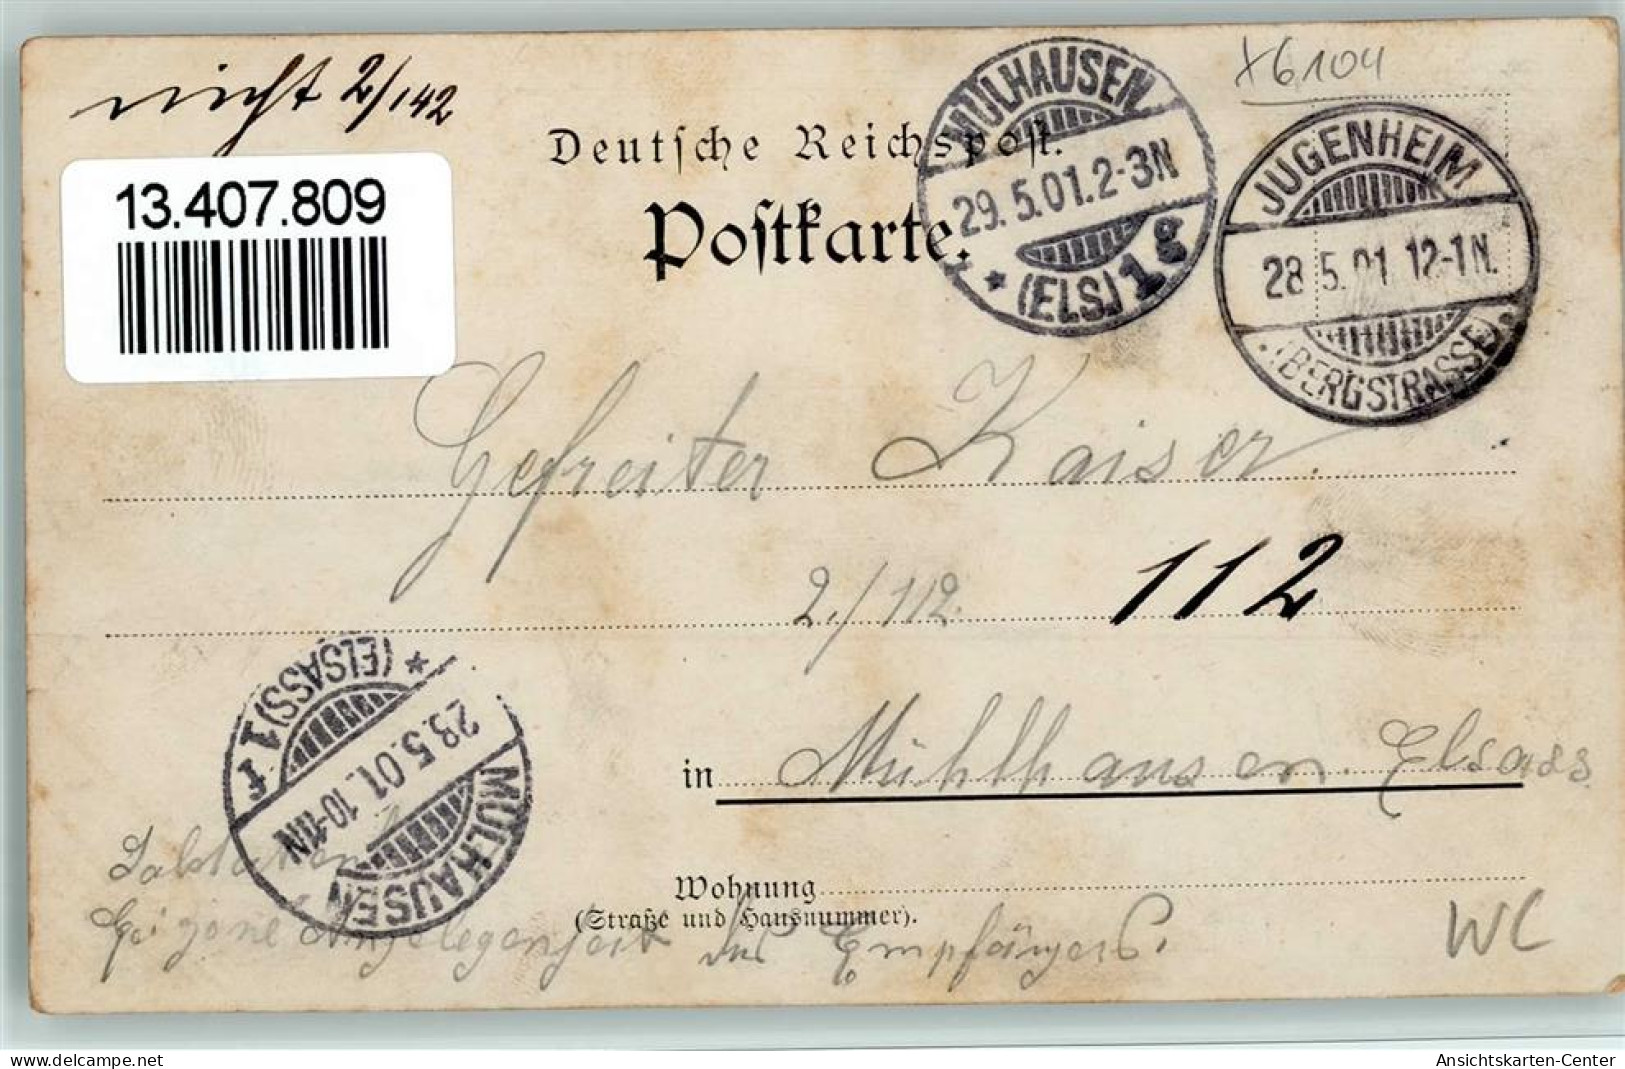 nicht 2/142
X6104
13.407.809
Deutsche Reichspost.
Postkarte.
MÜLHAUSEN
29.5.01.2-3N
* (ELS.) 1g
JUGENHEIM
28.5.01 12-1N.
(BERGSTRASSE)
Gefreiter Kaiser.
2./112. 112
in Mühlhausen. Elsass
MÜLHAUSEN
28.5.01. 10-11N
(ELSASS) 1 f *
Soldaten
Eigene Angelegenheit des Empfängers.
Wohnung
(Straße und Hausnummer).
WC
www.delcampe.net
Ansichtskarten-Center